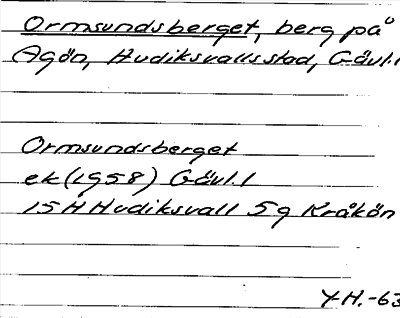 Ormsundsberget, berg på
Agön, Hudiksvalls stad, Gävl.l
Ormsundsberget
ek (1958) Gävl.l
15H Hudiksvall 5g Kråkön
YH.-63